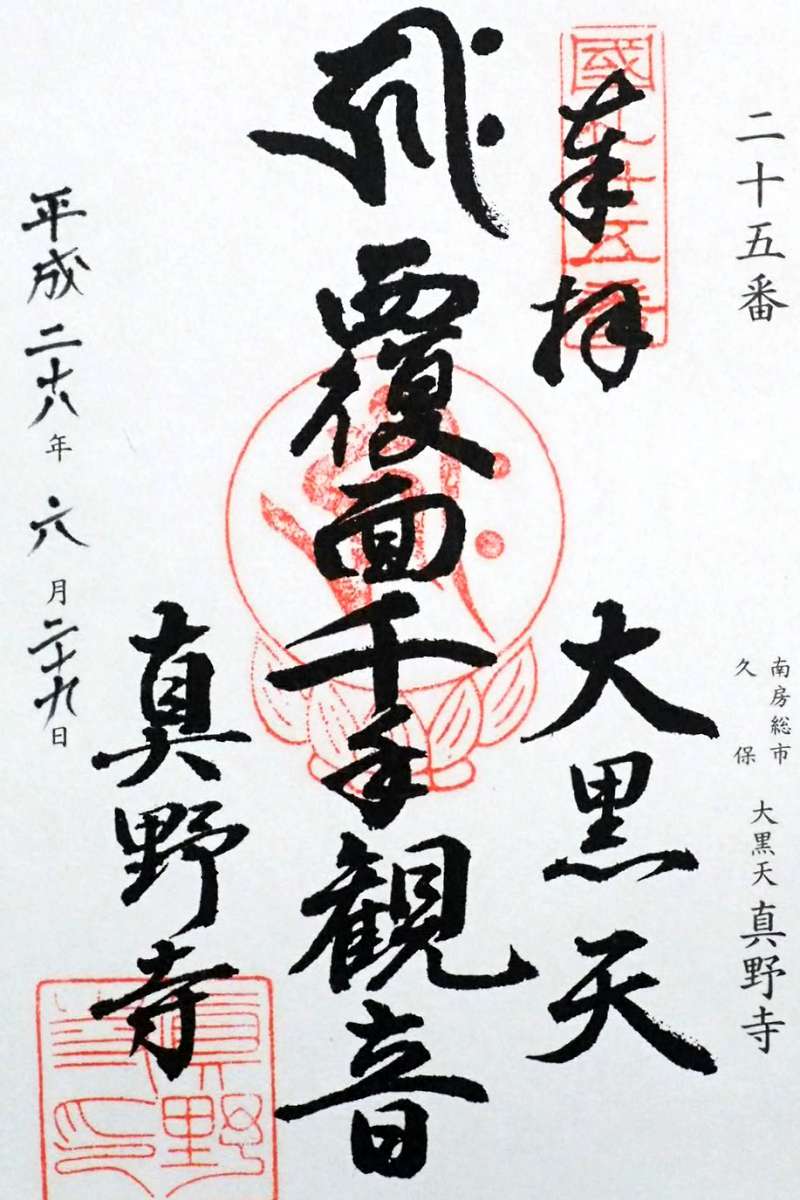 二十五番
南房総市
久保
大黒天 真野寺
奉拝
大黒天
覆面千手観音
真野寺
平成二十八年六月二十九日